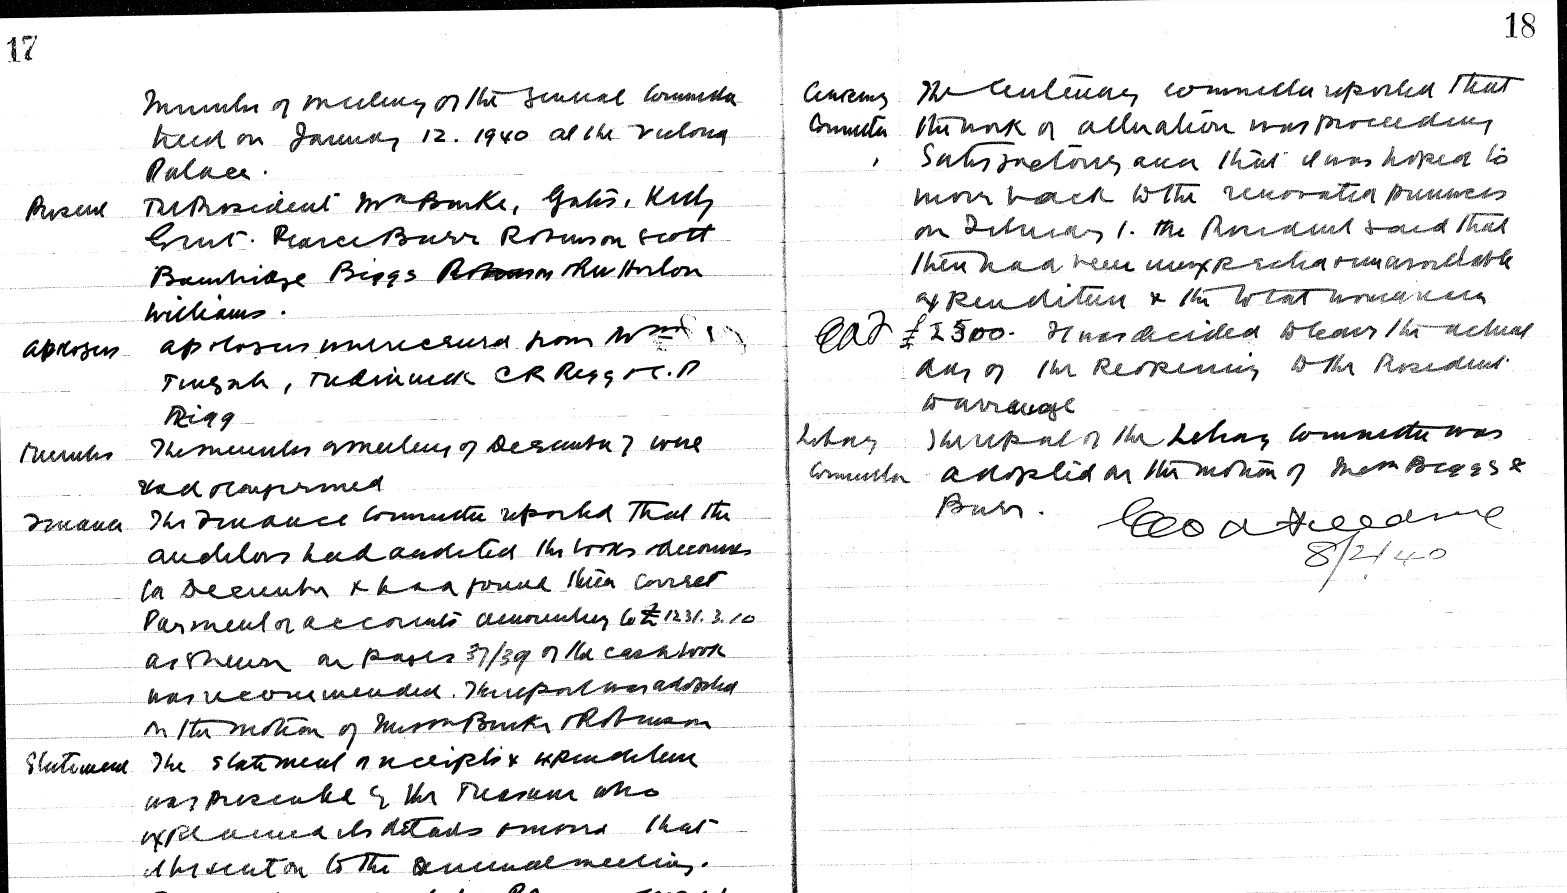 17
Minutes of meeting of the General Committee
held on January 12. 1940 at the Victoria
Palace.
Present The President Messrs Burke, Gates, Kelly
Grut. Pearce Burr Robinson Scott
Bainbridge Biggs Robinson Horton
Williams.
Apologies Apologies were received from Messrs
C R Rigg & C. P
Rigg
Minutes The minutes of meeting of December 7 were
read & confirmed
Finance The Finance Committee reported that the
auditors had audited the books & accounts
for December & had found them correct
Payment of accounts amounting to £1231.3.10
as shewn on pages 37/39 of the cash book
was recommended. The report was adopted
on the motion of Messrs Burke & Robinson
Statement The statement of receipts & expenditure
was presented by the Treasurer who
explained its details & moved that
it be sent on to the annual meeting.
18
Centenary The Centenary committee reported that
Committee the work of alteration was proceeding
satisfactorily and that it was hoped to
move back to the renovated premises
on February 1. The President said that
there had been unexpected & unavoidable
expenditure & the total
£2500. It was decided to leave the actual
day of the Reopening to the President
to arrange
Library The report of the Library Committee was
Committee adopted on the motion of Messrs Biggs &
Burr.
8/2/40